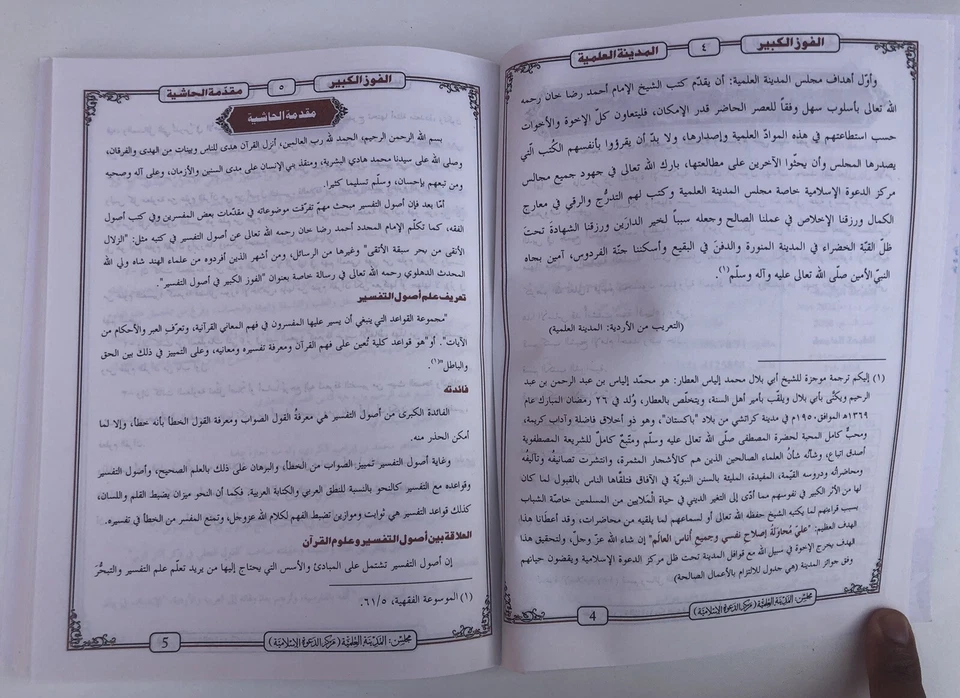 الفوز الكبير
٤
المدينة العلمية
وأوّل أهداف مجلس المدينة العلمية: أن يقدّم كتب الشيخ الإمام أحمد رضا خان رحمه
الله تعالى بأسلوب سهل وفقاً للعصر الحاضر قدر الإمكان، فليتعاون كلّ الإخوة والأخوات
حسب استطاعتهم في هذه الموادّ العلمية وإصدارها، ولا بدّ أن يقرؤوا بأنفسهم الكُتب الّتي
يصدرها المجلس وأن يحثّوا الآخرين على مطالعتها، بارك الله تعالى في جهود جميع مجالس
مركز الدعوة الإسلامية خاصة مجلس المدينة العلمية وكتب لهم التدرُّج والرقي في معارج
الكمال ورزقنا الإخلاص في عملنا الصالح وجعله سبباً لخير الدارَين ورزقنا الشهادة تحتَ
ظلّ القبّة الخضراء في المدينة المنورة والدفنَ في البقيع وأسكننا جنّة الفردوس، آمين بجاه
النبيّ الأمين صلّى الله تعالى عليه وآله وسلّم(١).
(التعريب من الأردية: المدينة العلمية)
(١) إليكم ترجمة موجزة للشيخ أبي بلال محمد إلياس العطار: هو محمّد إلياس بن عبد الرحمن بن عبد
الرحيم ويكنّى بأبي بلال ويلقّب بأمير أهل السنة، ويتخلّص بالعطار، وُلد في ٢٦ رمضان المبارك عام
١٣٦٩ه الموافق ١٩٥٠م في مدينة كراتشي من بلاد "باكستان"، وهو ذو أخلاق فاضلة وآداب كريمة،
ومحبٌّ كامل المحبة لحضرة المصطفى صلّى الله تعالى عليه وسلّم ومتّبعٌ كاملٌ للشريعة المصطفوية
أصدق اتباع، وشأنُه شأن العلماء الصالحين الذين هم كالأشجار المثمرة، وانتشرت تصانيفُه وتآليفُه
ومحاضراته ودروسه القيّمة، المفيدة، المليئة بالسنن النبوية في الآفاق فتلقّاها الناس بالقبول لما كان
لها من الأثر الكبير في نفوسهم مما أدّى إلى التغير الديني في حياة الملايين من المسلمين خاصّة الشباب
بسبب قراءتهم لما يكتبه الشيخ حفظه الله تعالى أو لسماعهم لما يلقيه من محاضرات، وقد أعطانا هذا
الهدف العظيم: "عليَّ مُحَاوَلَةُ إصلاحِ نفسي وجميعِ أناسِ العالم" إن شاء الله عزّ وجلّ، ولتحقيق هذا
الهدف يخرج الإخوة في سبيل الله مع قوافل المدينة تحت ظل مركز الدعوة الإسلامية ويقضون حياتهم
وفق جوائز المدينة (هي جدول للالتزام بالأعمال الصالحة)
مجلس: المدينة العلمية (مركز الدعوة الإسلامية)
4
الفوز الكبير
٥
مقدمة الحاشية
مقدمة الحاشية
بسم الله الرحمن الرحيم، الحمد لله رب العالمين، أنزل القرآن هدى للناس وبينات من الهدى والفرقان،
وصلى الله على سيدنا محمد هادي البشرية، ومنقذ بني الإنسان على مدى السنين والأزمان، وعلى آله وصحبه
ومن تبعهم بإحسان، وسلّم تسليما كثيرا.
أمّا بعد فإن أصول التفسير مبحث مهمّ تفرّقت موضوعاته في مقدّمات بعض المفسرين وفي كتب أصول
الفقه، كما تكلّم الإمام المجدد أحمد رضا خان رحمه الله تعالى عن أصول التفسير في كتبه مثل: "الزلال
الأنقى من بحر سبقة الأتقى" وغيرها من الرسائل، ومن أشهر الذين أفردوه من علماء الهند شاه ولي الله
المحدث الدهلوي رحمه الله تعالى في رسالة خاصة بعنوان "الفوز الكبير في أصول التفسير".
تعريف علم أصول التفسير
"مجموعة القواعد التي ينبغي أن يسير عليها المفسرون في فهم المعاني القرآنية، وتعرّف العبر والأحكام من
الآيات". أو"هو قواعد كلية تُعين على فهم القرآن ومعرفة تفسيره ومعانيه، وعلى التمييز في ذلك بين الحق
والباطل"(١).
فائدته
الفائدة الكبرى من أصول التفسير هي معرفةُ القول الصواب ومعرفة القول الخطأ بأنه خطأ، وإلا لما
أمكن الحذر منه.
وغاية أصول التفسير تمييز الصواب من الخطأ، والبرهان على ذلك بالعلم الصحيح، وأصول التفسير
وقواعده مع التفسير كالنحو بالنسبة للنطق العربي والكتابة العربية. فكما أن النحو ميزان يضبط القلم واللسان،
كذلك قواعد التفسير هي ثوابت وموازين تضبط الفهم لكلام الله عزوجل، وتمنع المفسّر من الخطأ في تفسيره.
العلاقة بين أصول التفسير وعلوم القرآن
إن أصول التفسير تشتمل على المبادئ والأسس التي يحتاج إليها من يريد تعلّم علم التفسير والتبحُّر
(١) الموسوعة الفقهية، ٦١/٥.
مجلس: المدينة العلمية (مركز الدعوة الإسلامية)
5